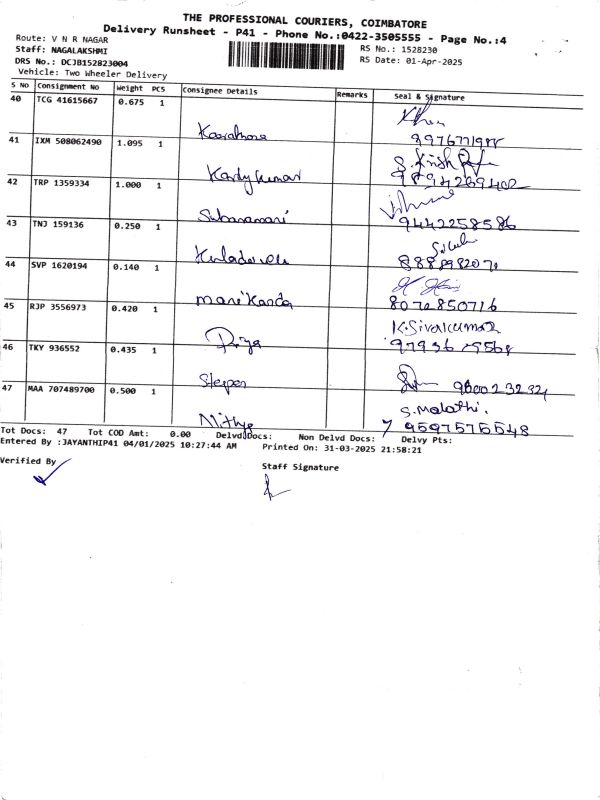 THE PROFESSIONAL COURIERS, COIMBATORE
Delivery Runsheet - P41 - Phone No.:0422-3505555 - Page No.:4
Route: V N R NAGAR
RS No.: 1528230
Staff: NAGALAKSHMI
RS Date: 01-Apr-2025
DRS No.: DCJB152823004
Vehicle: Two Wheeler Delivery
S No Consignment No Weight PCS Consignee Details Remarks Seal & Signature
40 TCG 41615667 0.675 1
41 IXM 508062490 1.095 1
42 TRP 1359334 1.000 1
Subaramani
9442258586
43 TNJ 159136 0.250 1
44 SVP 1620194 0.140 1
manikanda 8072850716
45 RJP 3556973 0.420 1 K.Sivakumar
Priya
46 TKY 936552 0.435 1
47 MAA 707489700 0.500 1 S.Malathi.
Nithya 9597575548
Tot Docs: 47 Tot COD Amt: 0.00 Delvd Docs: Non Delvd Docs: 7 Delvy Pts:
Entered By :JAYANTHIP41 04/01/2025 10:27:44 AM Printed On: 31-03-2025 21:58:21
Verified By
Staff Signature